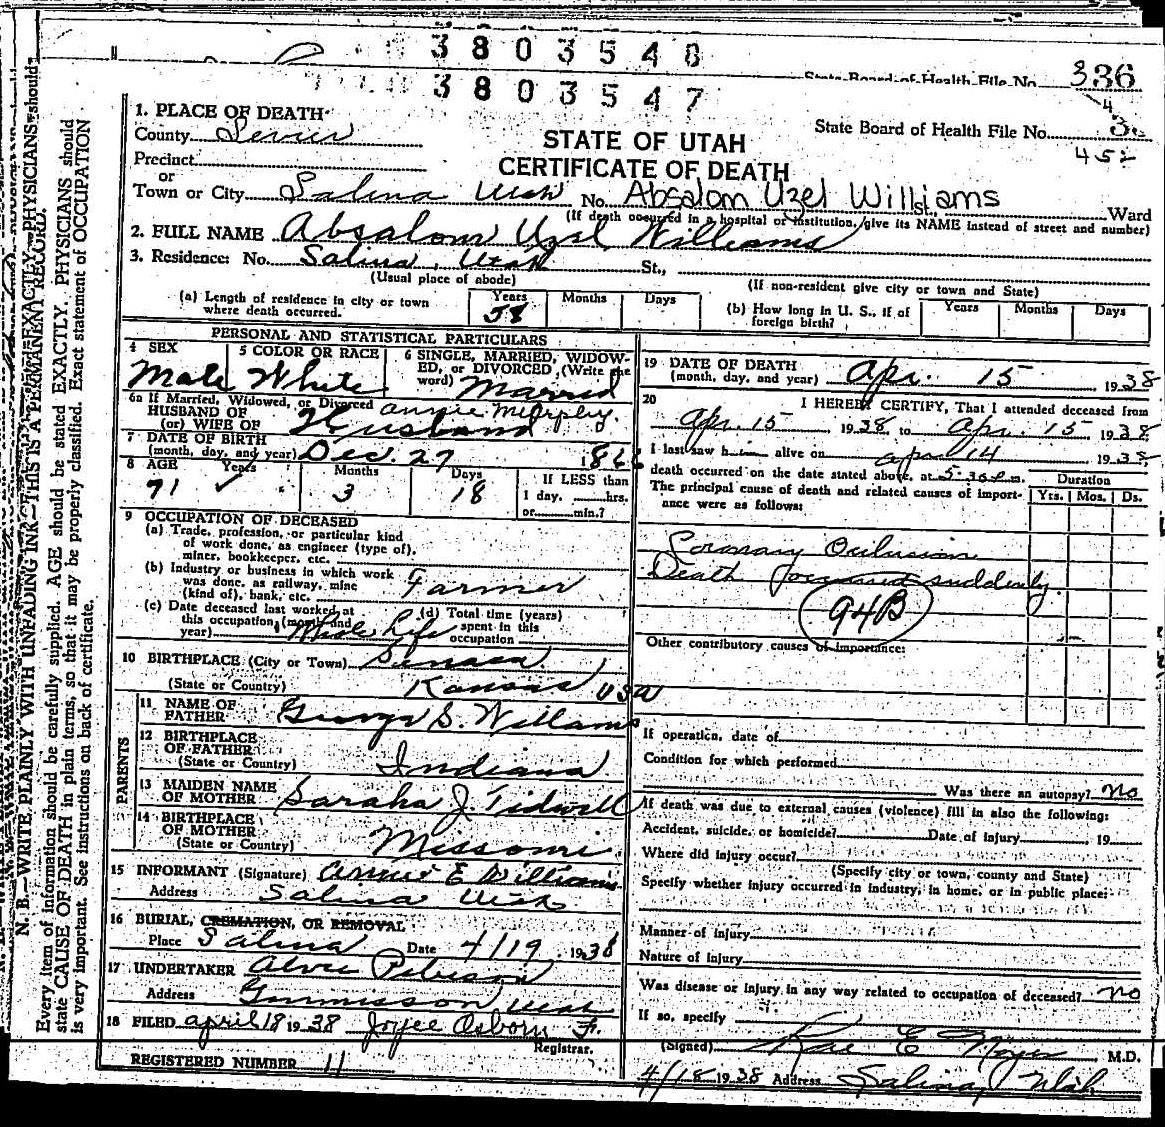 3803548
State Board of Health File No. 336
3803547
1. PLACE OF DEATH
County Sevier
STATE OF UTAH
State Board of Health File No.
CERTIFICATE OF DEATH
452
Precinct
or
Town or City Salina Utah No. Absalom Uzel Williams Ward
(If death occurred in a hospital or institution, give its NAME instead of street and number)
2. FULL NAME Absalom Uzal Williams
3. Residence: No. Salina, Utah St.,
(Usual place of abode) (If non-resident give city or town and State)
(a) Length of residence in city or town where death occurred. Years 58 Months Days
(b) How long in U. S., if of foreign birth? Years Months Days
PERSONAL AND STATISTICAL PARTICULARS
4 SEX Male
5 COLOR OR RACE White
6 SINGLE, MARRIED, WIDOWED, or DIVORCED (Write the word) Married
6a If Married, Widowed, or Divorced
HUSBAND OF Annie Murphy.
(or) WIFE OF Husband
7 DATE OF BIRTH
(month, day, and year) Dec. 27 1866
8 AGE Years 71 Months 3 Days 18
If LESS than
1 day, hrs.
or min.?
9 OCCUPATION OF DECEASED
(a) Trade, profession, or particular kind
of work done, as engineer (type of),
miner, bookkeeper, etc.
(b) Industry or business in which work
was done, as railway, mine
(kind of), bank, etc. Farmer
(c) Date deceased last worked at
this occupation (month and
year) Whole Life
(d) Total time (years)
spent in this
occupation
10 BIRTHPLACE (City or Town)
(State or Country) Kansas USA
PARENTS
11 NAME OF
FATHER George S. Williams
12 BIRTHPLACE
OF FATHER
(State or Country) Indiana
13 MAIDEN NAME
OF MOTHER Saraha J. Tidwell
14 BIRTHPLACE
OF MOTHER
(State or Country) Missouri
15 INFORMANT (Signature) Annie E Williams
Address Salina Utah
16 BURIAL, CREMATION, OR REMOVAL
Place Salina Date 4/19 1938
17 UNDERTAKER
Address Gunnisson Utah
18 FILED April 18 1938 Joyce Osborn F.
Registrar.
REGISTERED NUMBER 11
19 DATE OF DEATH
(month, day, and year) Apr. 15 1938
20 I HEREBY CERTIFY, That I attended deceased from
Apr. 15 1938 to Apr. 15 1938
I last saw him alive on Apr 14 1938
death occurred on the date stated above, at 5:30 P.m.
The principal cause of death and related causes of importance were as follows:
Duration
Yrs. Mos. Ds.
Coronary Occlusion
Death occurred suddenly.
94B
Other contributory causes of importance:
If operation, date of
Condition for which performed
Was there an autopsy? No
If death was due to external causes (violence) fill in also the following:
Accident, suicide, or homicide? Date of injury 19
Where did injury occur?
(Specify city or town, county and State)
Specify whether injury occurred in industry, in home, or in public place:
Manner of injury
Nature of injury
Was disease or injury in any way related to occupation of deceased? No
If so, specify
(Signed) Rae E Noyes M.D.
4/18 1938 Address Salina, Utah
N. B.—WRITE PLAINLY WITH UNFADING INK—THIS IS A PERMANENT RECORD.
Every item of information should be carefully supplied. AGE should be stated EXACTLY. PHYSICIANS should
state CAUSE OF DEATH in plain terms, so that it may be properly classified. Exact statement of OCCUPATION
is very important. See instructions on back of certificate.